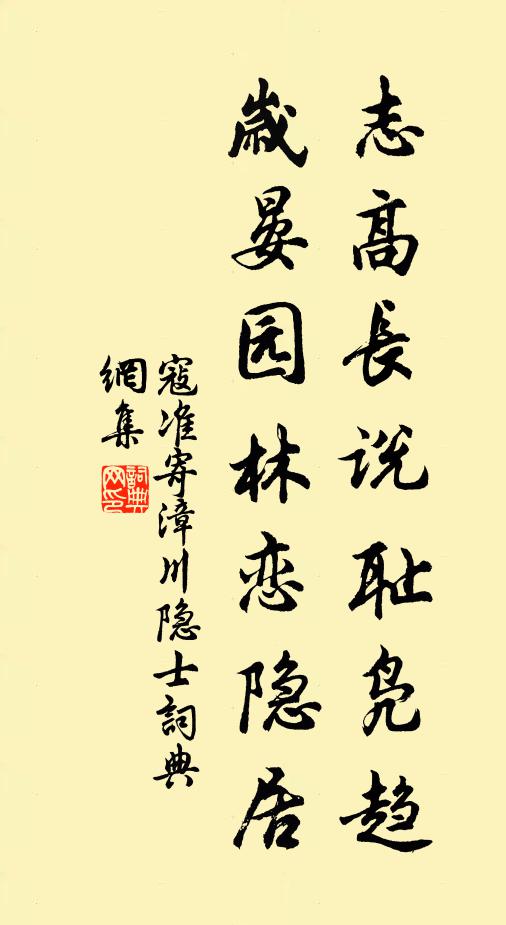 志高長说耻凫趋
歲晏园林恋隐居
寇准寄漳川隐士詞典
網集
詞典
网印